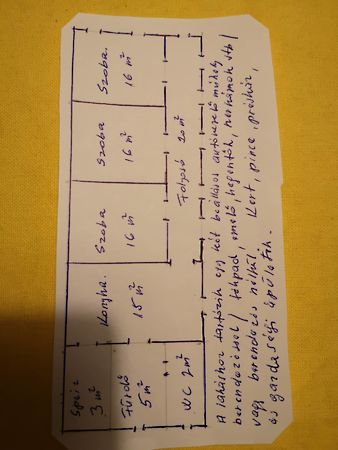 Speiz
3 m²
Fürdő
5 m²
WC 2m²
Konyha.
15 m²
Szoba
16 m²
Szoba
16 m²
Szoba.
16 m²
Folyosó 20 m²
A lakáshoz tartozik egy két beállásos autószerelő műhely
berendezéssel / fékpad, emelő, hegesztők, szerszámok stb /
vagy berendezés nélkül. Kert, pince, présház,
és gazdasági épületek.